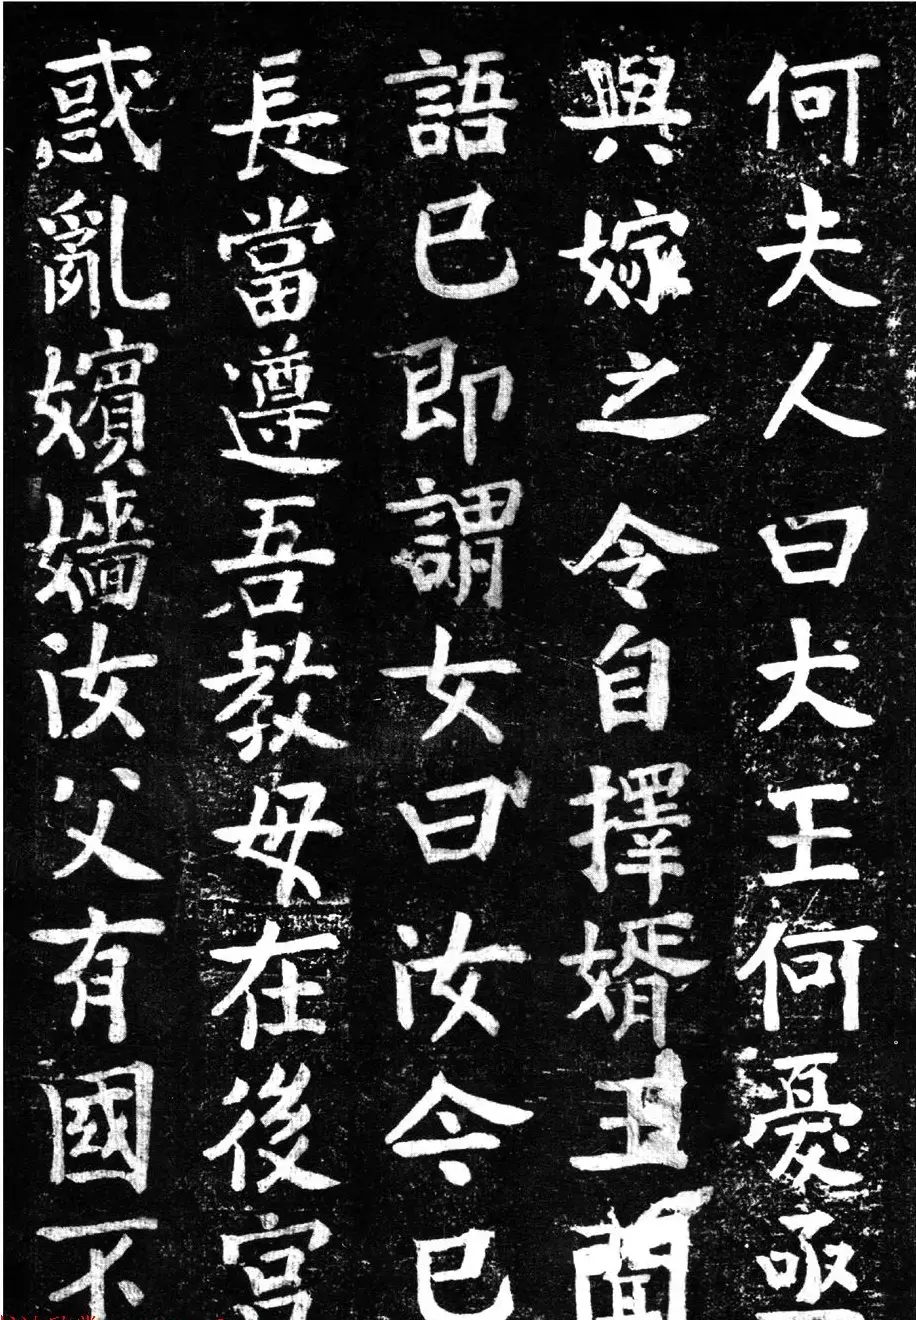 何夫人曰大王何憂亟
與嫁之令自擇婿王聞
語已即謂女曰汝今已
長當遵吾教母在後宮
惑亂嬪嬙汝父有國不